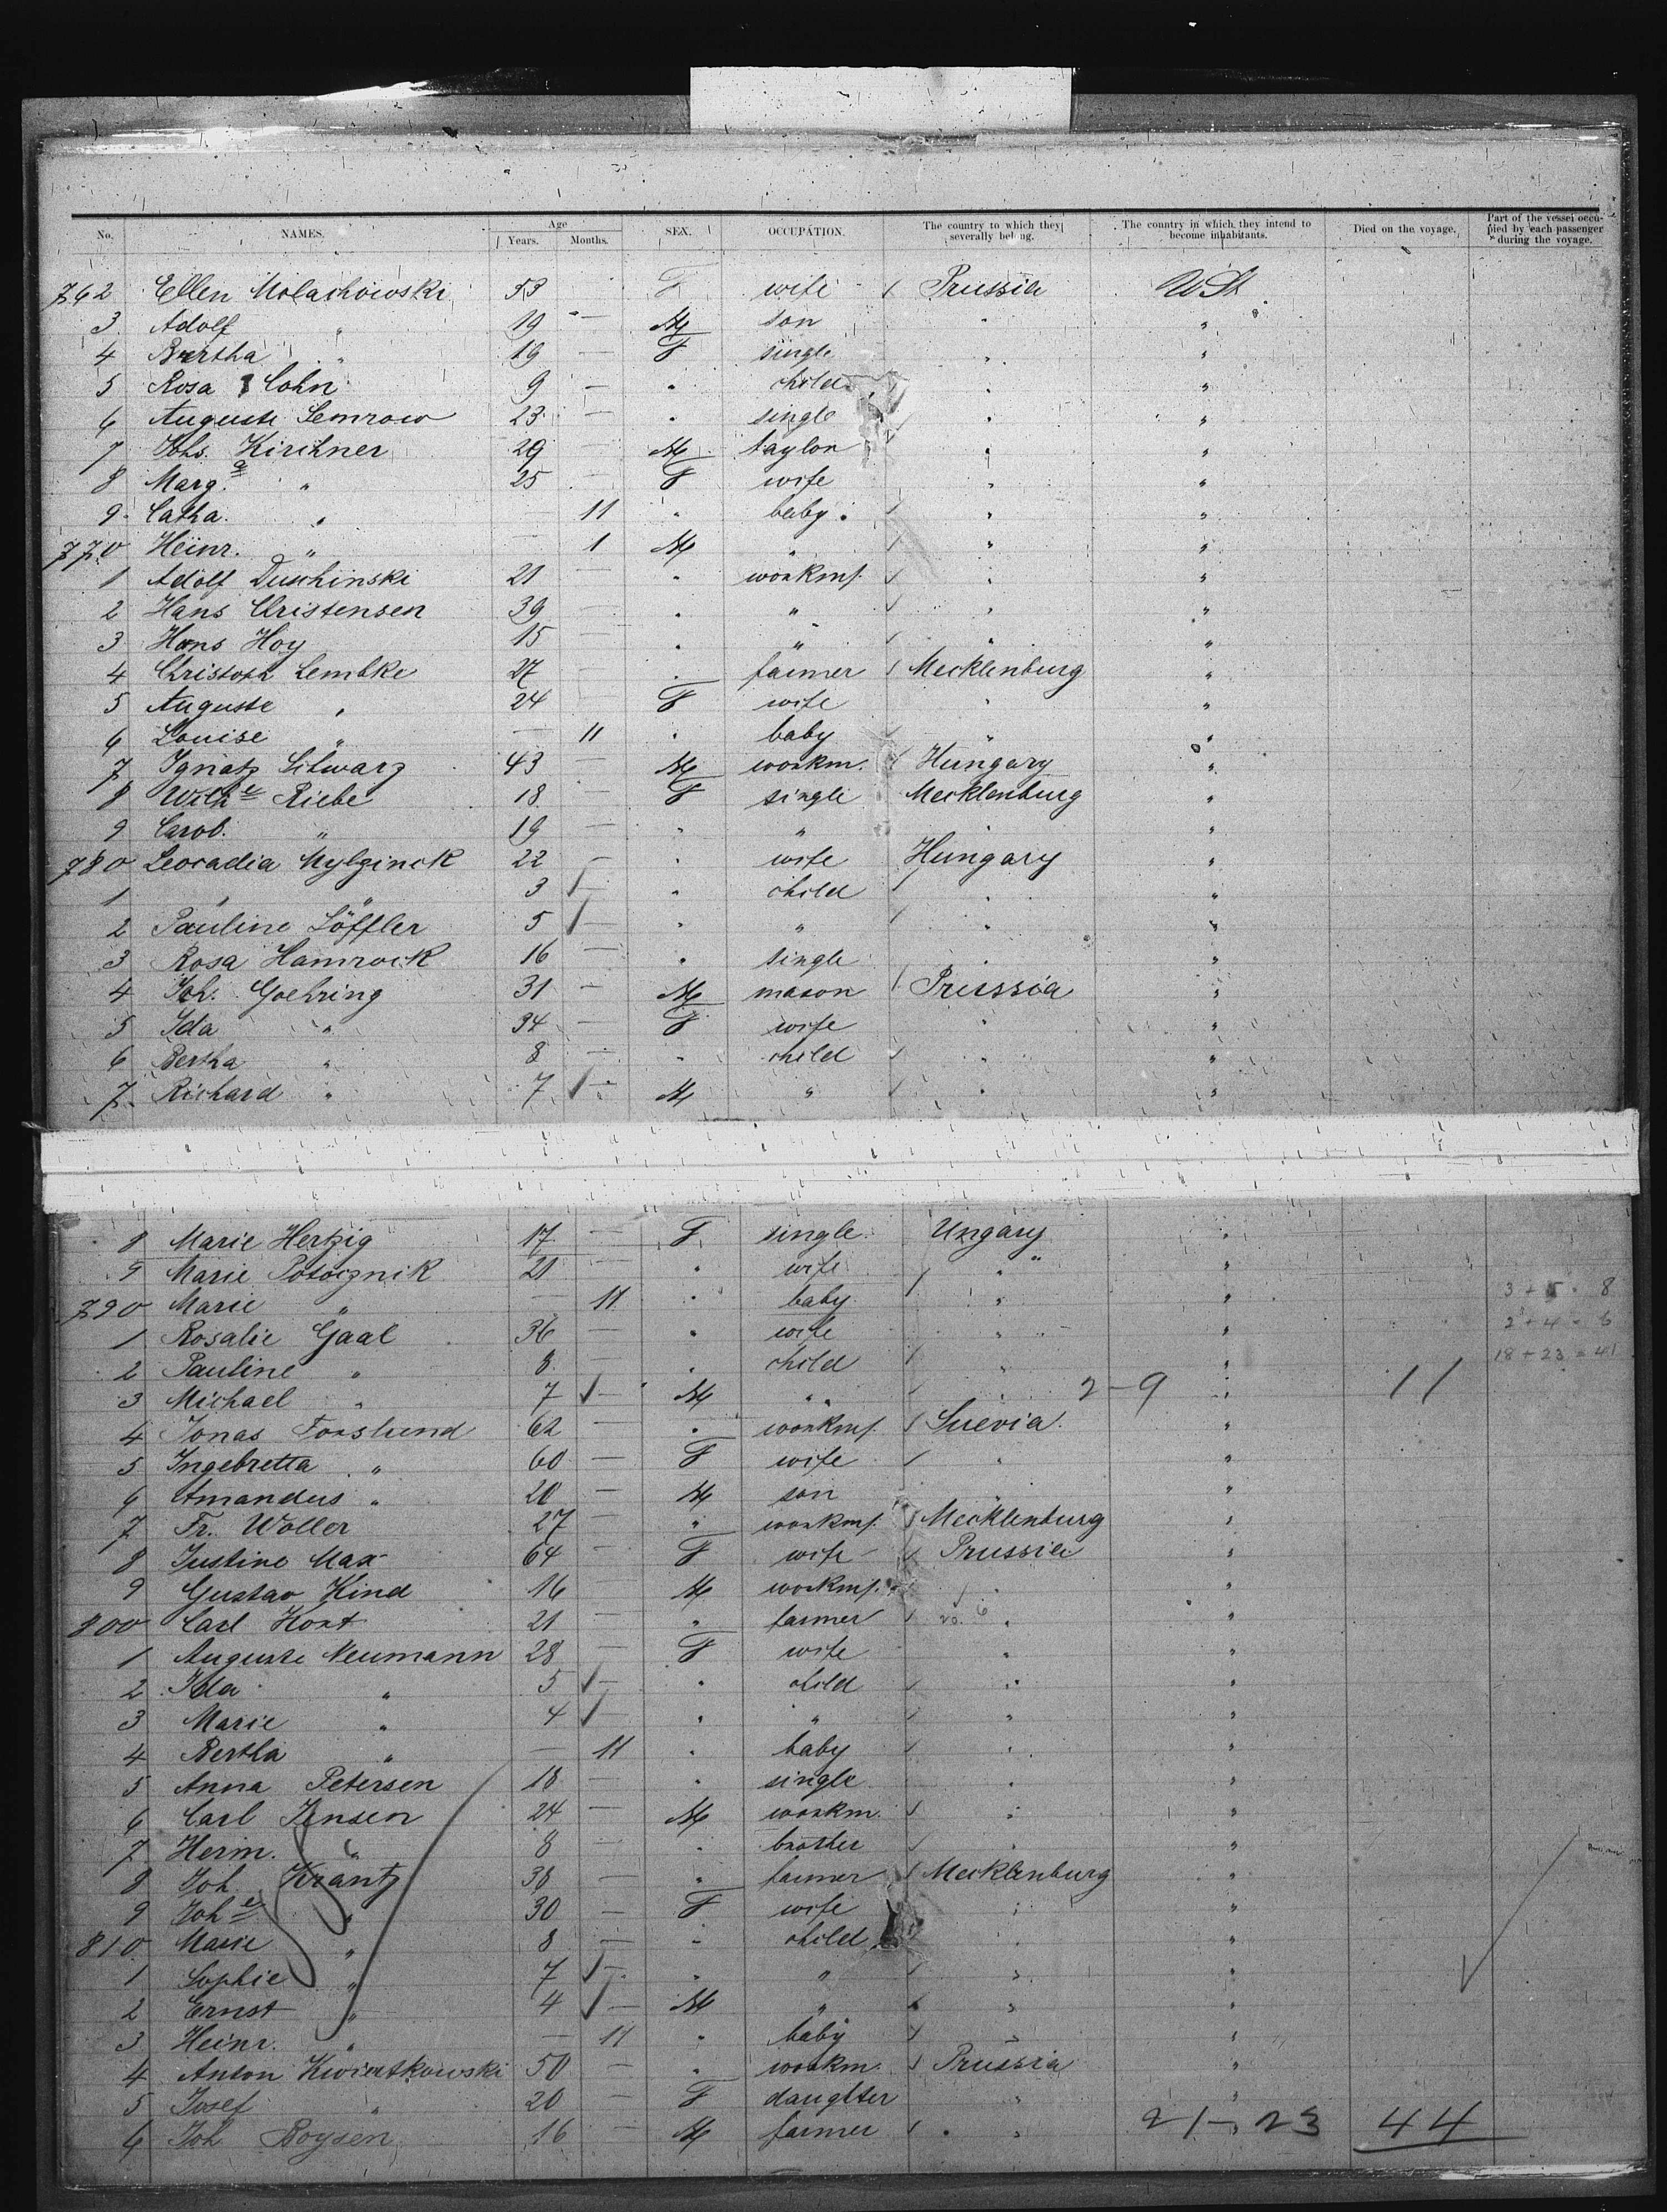 No. NAMES. Age Years. Months. SEX. OCCUPATION. The country to which they severally belong. The country in which they intend to become inhabitants. Died on the voyage. Part of the vessel occupied by each passenger during the voyage.
762 Ellen Molachowski 53 F wife Prussia U St
3 Adolf " 19 — M son " "
4 Bertha " 19 — F single " "
5 Rosa Cohn 9 — " child " "
6 Auguste Semrow 23 — " single " "
7 Johs. Kirchner 29 — M taylor " "
8 Marg.a " 25 — F wife " "
9 Catha. " 11 " baby " "
770 Heinr. " — 1 M " " "
1 Adolf Duschinski 21 — " workm. " "
2 Hans Christensen 39 — " " " "
3 Hans Hoy 15 — " " " "
4 Christoph Lembke 27 — " farmer Mecklenburg "
5 Auguste " 24 — F wife " "
6 Louise " — 11 " baby " "
7 Ignatz Schwarz 43 — M workm. Hungary "
8 Wilhe Riebe 18 — F single Mecklenburg "
9 Carol. " 19 — " " " "
780 Leocadia Mylzinck 22 — " wife Hungary "
1 " " 3 — " child " "
2 Pauline Löffler 5 — " " " "
3 Rosa Hamrock 16 — " single " "
4 Joh. Goehring 31 — M mason Prussia "
5 Ida " 34 — F wife " "
6 Bertha " 8 — " child " "
7 Richard " 7 — M " " "
8 Marie Hertzig 17 — F single Ungary "
9 Marie Potocznik 21 — " wife " "
790 Marie " — 11 " baby " " 3 + 5 = 8
1 Rosalie Gaal 36 — " wife " " 2 + 4 = 6
2 Pauline " 8 — " child " " 18 + 23 = 41
3 Michael " 7 — M " " 2-9 " 11
4 Jonas Forslund 62 — " workm. Suevia "
5 Ingebretta " 60 — F wife " "
6 Amandus " 20 — M son " "
7 Fr. Woller 27 — " workm. Mecklenburg "
8 Justine Max 64 — F wife Prussia "
9 Gustav Kind 16 — M workm. " "
800 Carl Kort 21 — " farmer " "
1 Auguste Neumann 28 — F wife " "
2 Ida " 5 — " child " "
3 Marie " 4 — " " " "
4 Bertha " — 11 " baby " "
5 Anna Petersen 18 — " single " "
6 Carl Jensen 24 — M workm. " "
7 Herm. " 8 — " brother " "
8 Joh. Krantz 38 — " farmer Mecklenburg "
9 Johe " 30 — F wife " "
810 Marie " 8 — " child " "
1 Sophie " 7 — " " " "
2 Ernst " 4 — M " " "
3 Heinr. " — 11 " baby " "
4 Anton Kwiertkowski 50 — " workm. Prussia "
5 Josef " 20 — F daughter " "
6 Joh Boysen 16 — M farmer " 21-23 44